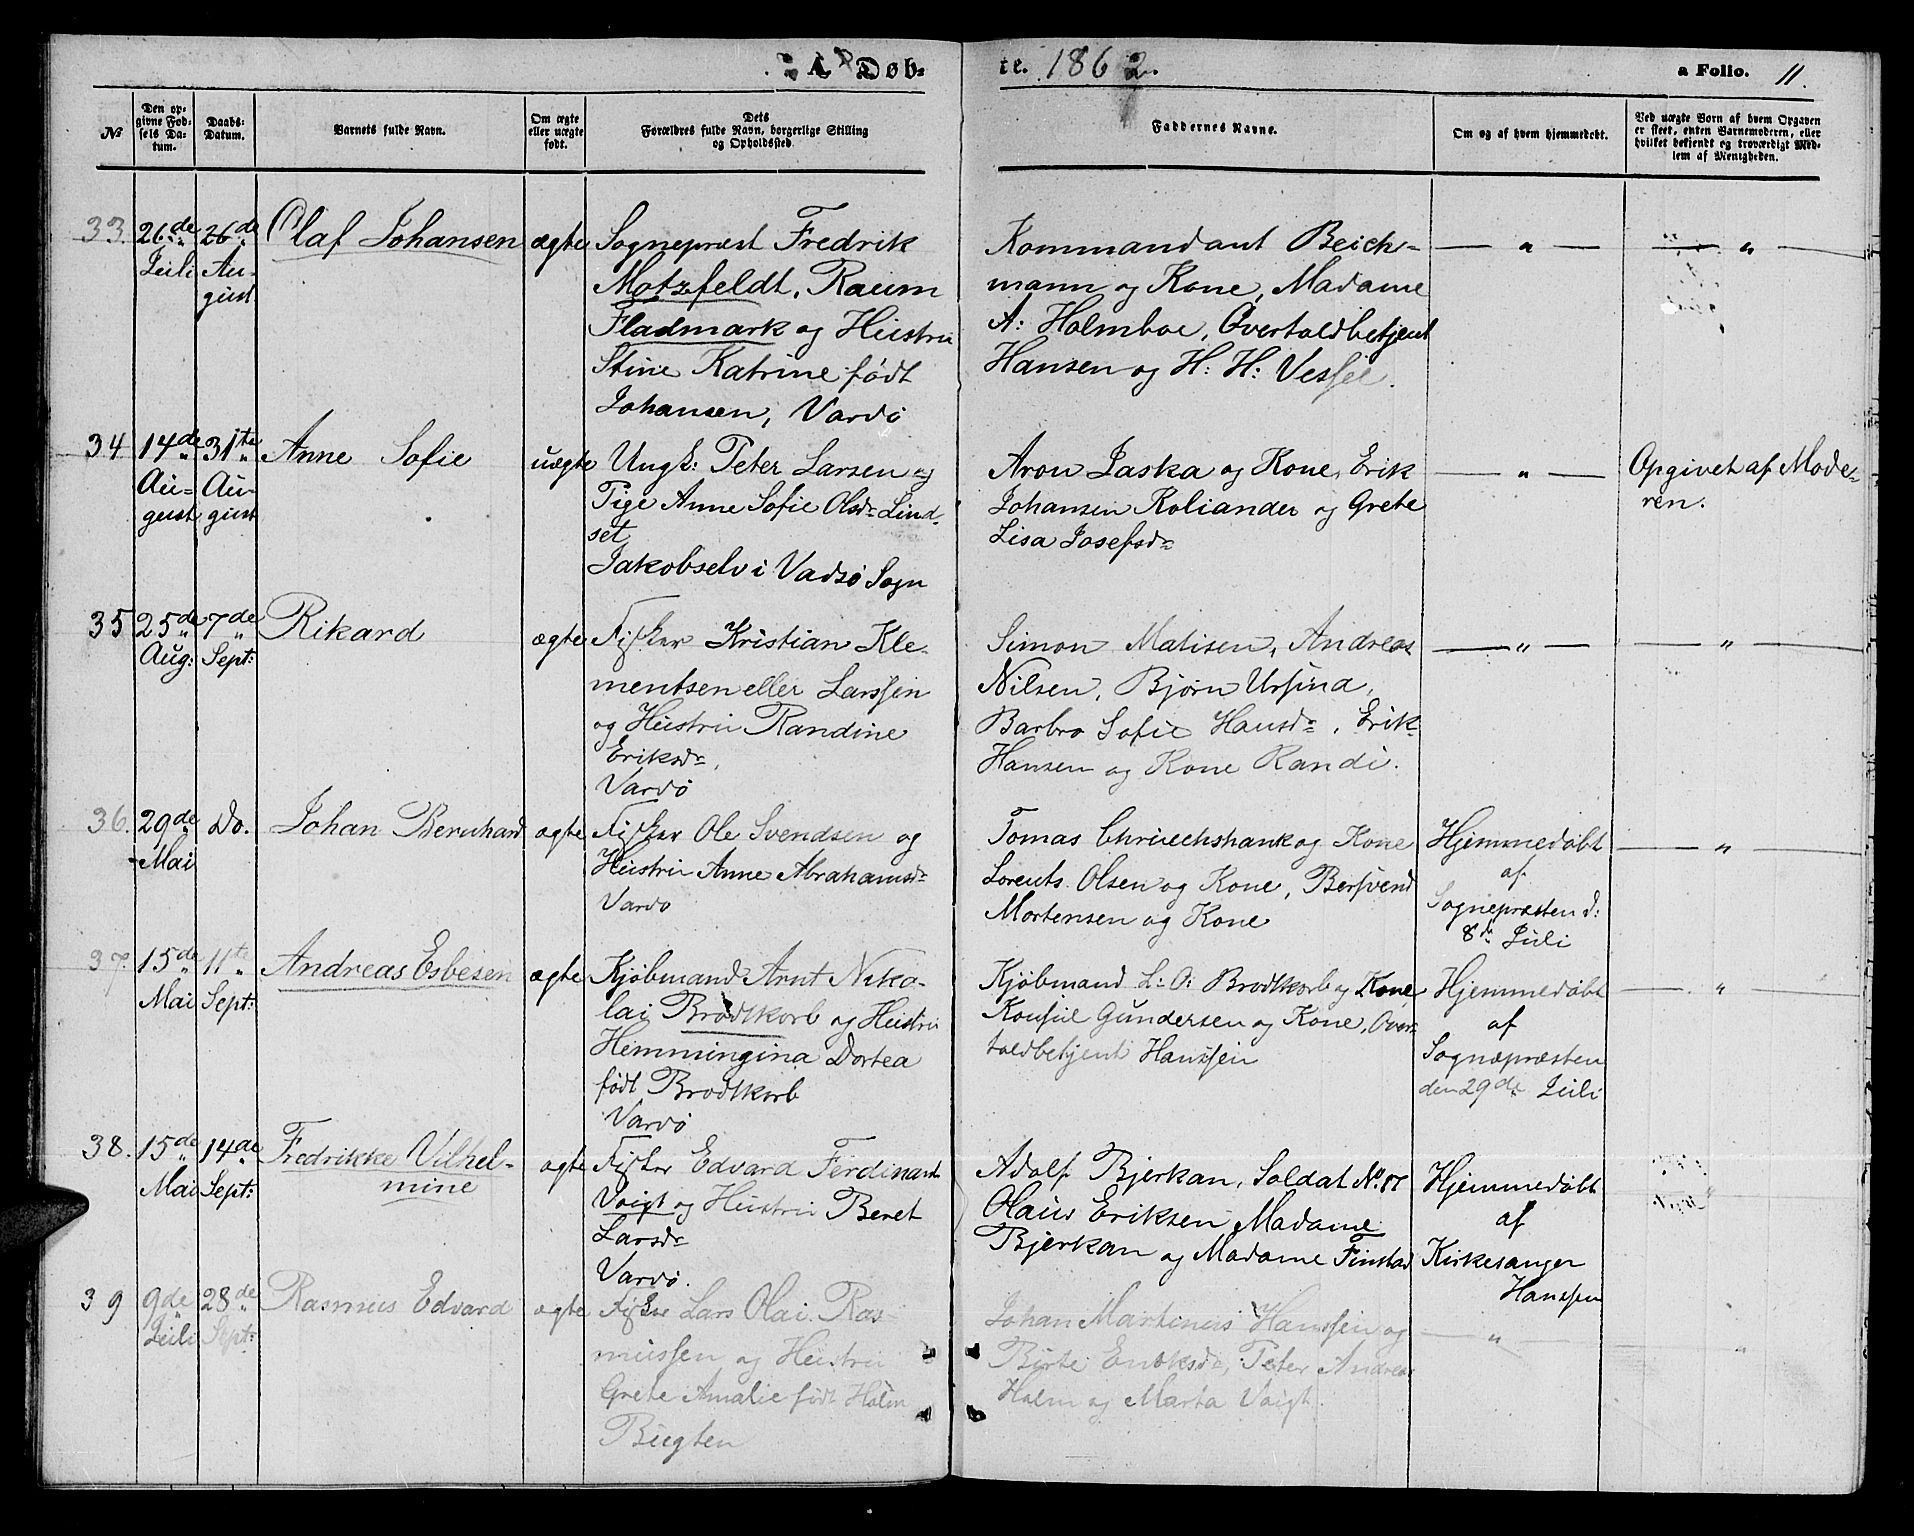 A. Døb-
te. 1862.
a Folio. 11.
No
Den op-
givne Fød-
sels Da-
tum.
Daabs-
Datum.
Barnets fulde Navn.
Om ægte
eller uægte
født.
Dets
Forældres fulde Navn, borgerlige Stilling
og Opholdssted.
Faddernes Navne.
Om og af hvem hjemmedøbt.
Ved uægte Børn af hvem Opgaven
er skeet, enten Barnemoderen, eller
hvilket bekjendt og troværdigt Med-
lem af Menigheden.
33.
26de
Juli
26de
Au-
gust
Olaf Johansen
ægte
Sognepræst Fredrik
Motzfeldt, Raum
Fladmark og Hustru
Stine Katrine født
Johansen, Vardø
Kommandant Beich-
mann og Kone, Madame
A: Holmboe, Overtoldbetjent
Hansen og H: H: Vessel.
— " —
— " —
34
14de
Au-
gust
31te
Au-
gust
Anne Sofie
uægte
Ungk: Peter Larsen og
Pige Anne Sofie Olsdr Lind-
set
Jakobselv i Vadsø Sogn
Aron Laska og Kone, Erik
Johansen Roliander og Grete
Lisa Josefsdr
— " —
Opgivet af Mode-
ren.
35
25de
Aug:
7de
Sept:
Rikard
ægte
Fisker Kristian Kle-
mentsen eller Larssen
og Hustru Randine
Eriksdr,
Vardø
Simon Matisen, Andreas
Nilsen, Bjørn Ursind,
Barbro Sofie Hansdr, Erik
Hansen og Kone Randi.
— " —
— " —
36.
29de
Mai
Do.
Johan Bernhard
ægte
Fisker Ole Svendsen og
Hustru Anne Abrahamsdr
Vardø
Tomas Chruechshank og Kone
Lorents Olsen og Kone, Bersvend
Mortensen og Kone
Hjemmedøbt
af
Sognepræsten d:
8de Juli
— " —
37.
15de
Mai
11te
Sept:
Andreas Esbesen
ægte
Kjøbmand Arnt Niko-
lai Brodtkorb og Hustru
Hemmingina Dortea
født Brodtkorb
Vardø
Kjøbmand L: O: Brodtkorb og Kone,
Konsul Gundersen og Kone, Over-
toldbetjent Hanssen
Hjemmedøbt
af
Sognepræsten
den 29de Juli
— " —
38.
15de
Mai
14de
Sept:
Fredrikke Vilhel-
mine
ægte
Fisker Edvard Ferdinant
Voigt og Hustru Beret
Larsdr
Vardø.
Adolf Bjerkan, Soldat No.
Olaus Eriksen, Madame
Bjerkan og Madame Finstad
Hjemmedøbt
af
Kirkesanger
Hanssen
"
39
9de
Juli
28de
Sept:
Rasmus Edvard
ægte
Fisker Lars Olai Ras-
mussen og Hustru
Grete Amalie født Holm
Bugten
Johan Martinus Hanssen og
Birte Enoksdr, Peter Andreas
Holm og Marta Voigt.
— " —
"